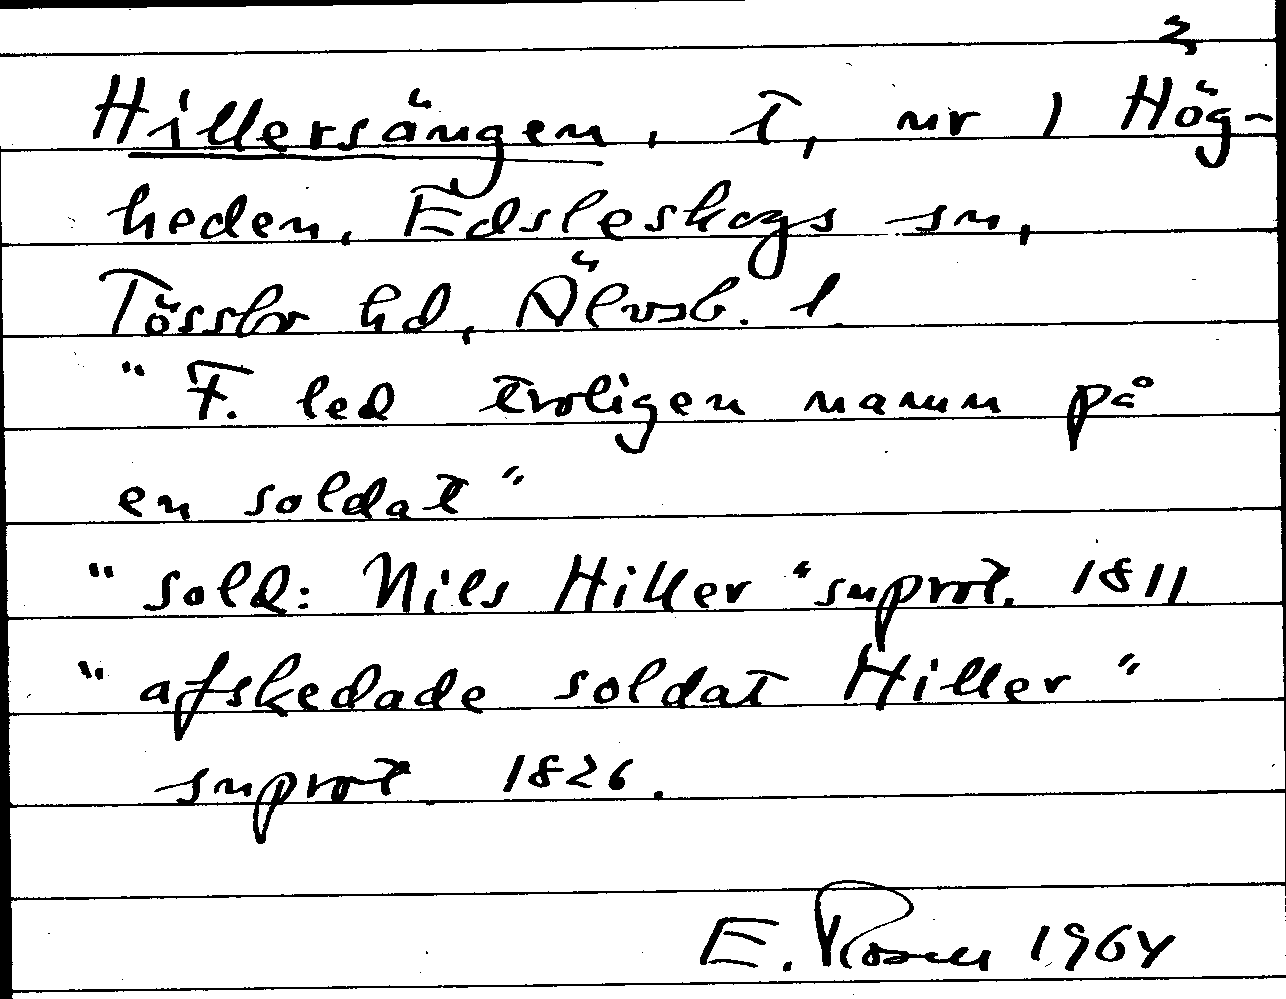 2,
Hillersängen, T, nr 1 Hög-
heden, Edsleskogs sn,
Tössbo hd, Älvsb. l.
"F. led troligen namn på
en soldat"
"sold: Nils Hiller" snprot. 1811
"afskedade soldat Hiller"
snprot 1826.
E. Rosell 1964